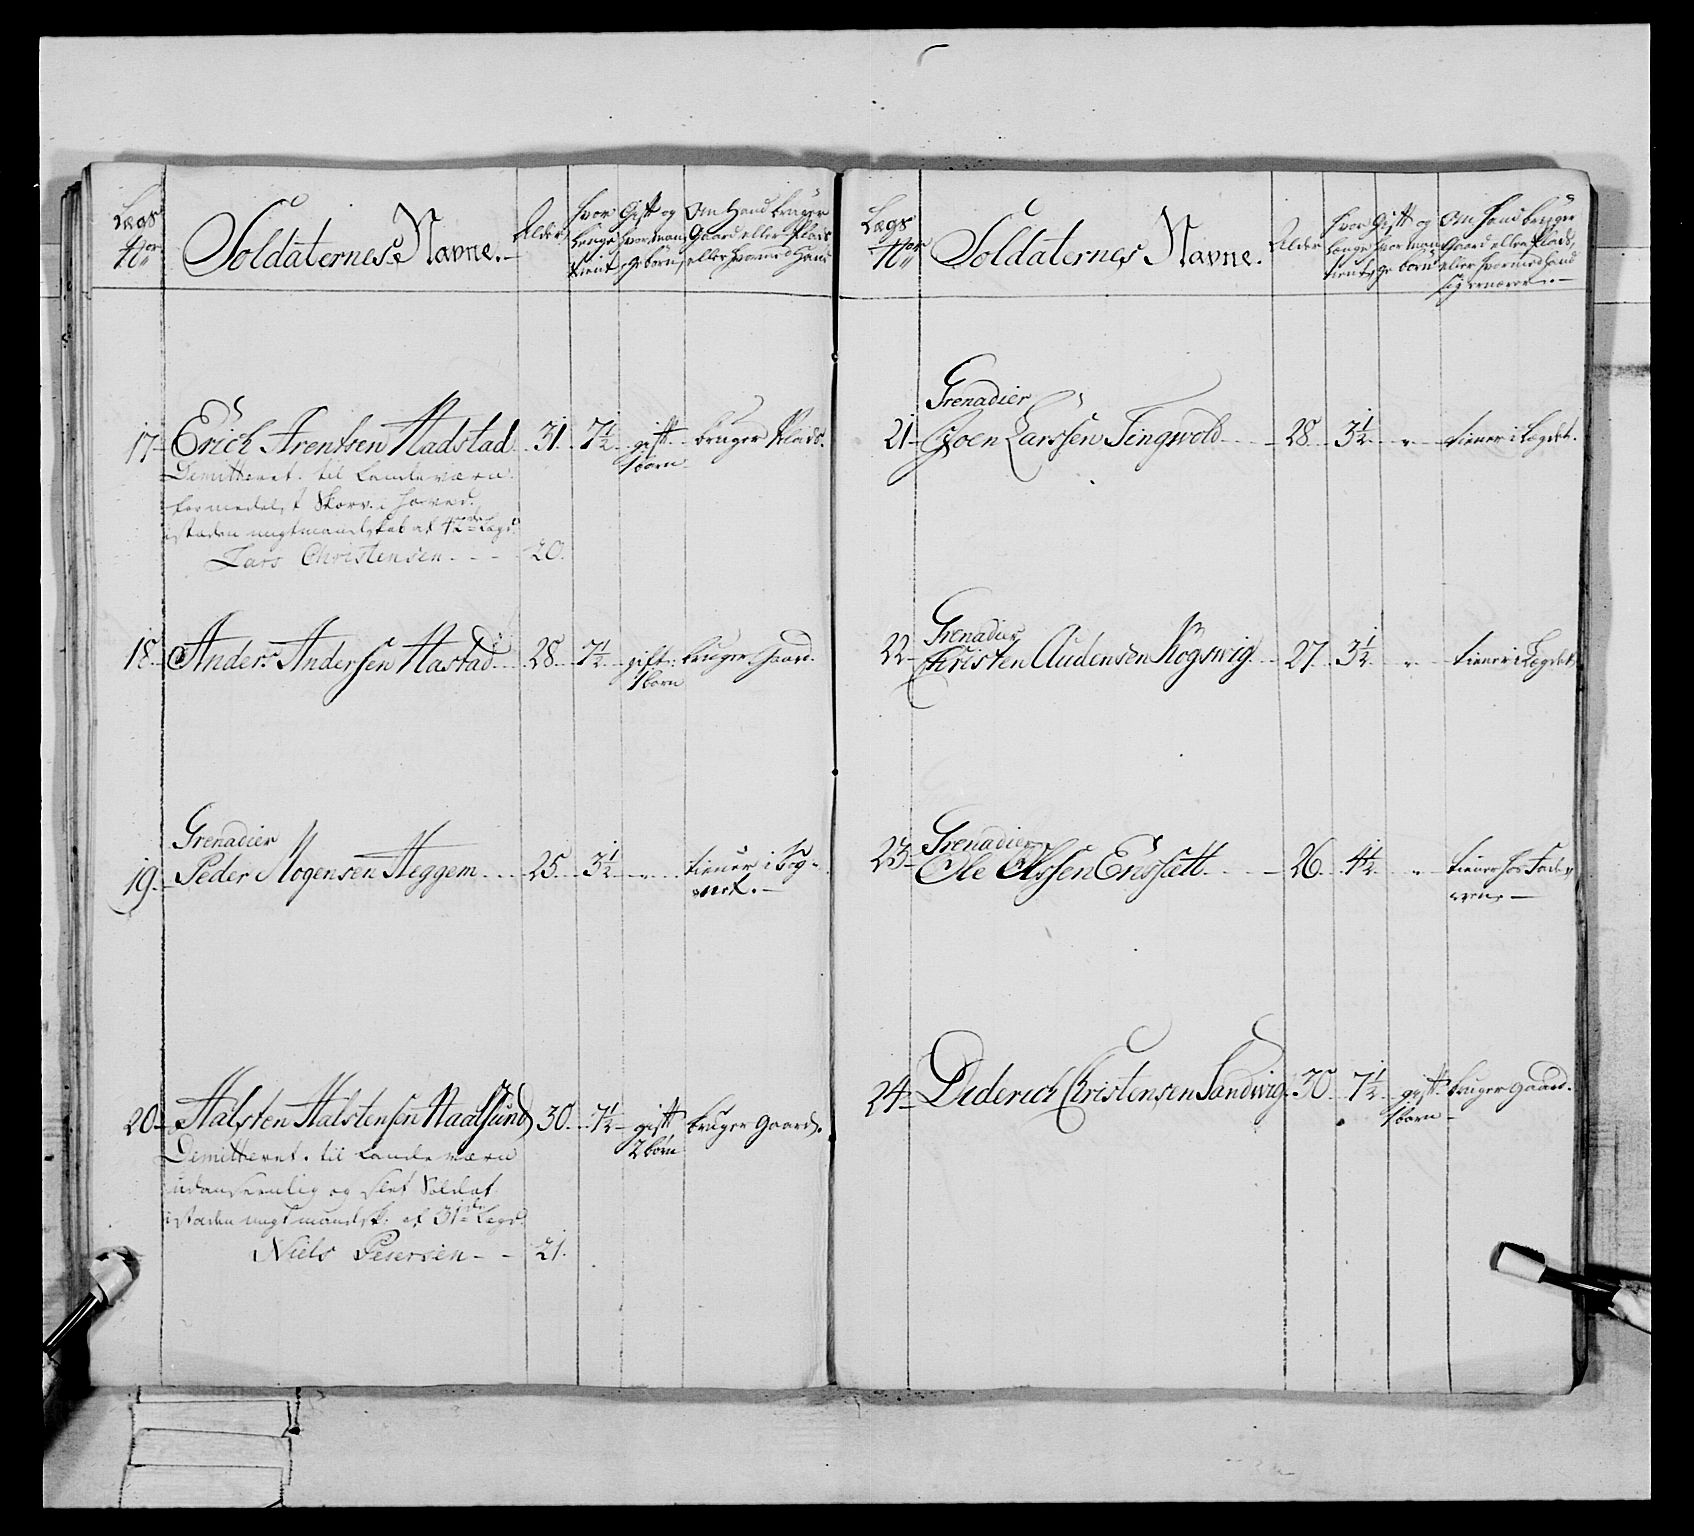 Lægs No
Soldaternes Navne.
Alder
hvor længe tient
Gift og hvor man ge børn
Om Hand bruger Gaard eller Plads eller hvormed Hand
17 Erich Arentsen Nadstad 31. 7½ gift 1 barn bruger Plads.
Demitteret til Landeværn
formedelst Skorv i hoved.
i staden ungtmandskab af 42de Lægd
Lars Christensen 20.
18 Anders Andersen Hastad 28. 7½ gift 1 barn bruger Gaard.
Grenadier
19. Peder Mogensen Heggem 25. 3½ " tiener i Sog-
net.
20 Halsten Halstensen Naalsund 30. 7½ gift 2 børn bruger Gaard.
Demitteret til Landeværn
udanseenlig og slet Soldat
i staden ungtmandsk. af 31de Lægd.
Niels Pedersen 21.
Lægs No
Soldaternes Navne.
Alder
hvor længe tient
Gift og hvor man ge børn
Om Hand bruger Gaard eller Plads, eller hvormed Hand sig ernærer
Grenadier
21 Joen Larssen Tingvold 28. 3½ " tiener i Lægdet.
Grenadier
22 Christen Audensen Kogswig 27 3½ " tiener i Lægdet
Grenadier
23 Ole Olssen Enssatt 26 4½ " tiener hos Fade-
ren
24 Diderich Christensen Sandwig 30 7½ gift 1 barn bruger Gaard.